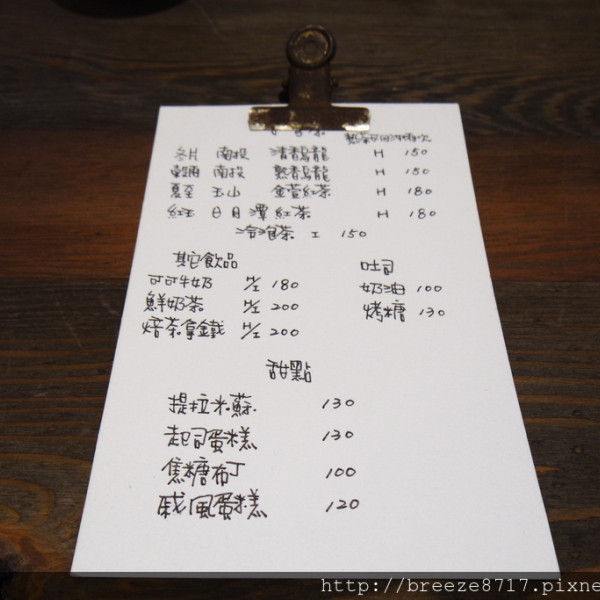 冬片 南投 清香烏龍 H 150
穀雨 南投 熟香烏龍 H 150
夏至 玉山 金萱紅茶 H 180
紅玉 日月潭紅茶 H 180
冷泡茶 I 150
其它飲品
可可牛奶 H/I 180
鮮奶茶 H/I 200
焙茶拿鐵 H/I 200
吐司
奶油 100
烤糖 130
甜點
提拉米蘇 130
起司蛋糕 130
焦糖布丁 100
戚風蛋糕 120
http://breeze8717.pixne